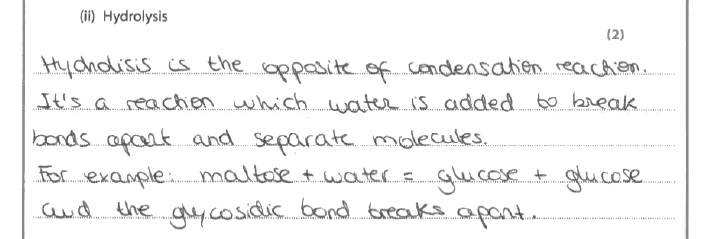 (ii) Hydrolysis
(2)
Hydrolisis is the opposite of condensation reaction.
It's a reaction which water is added to break
bonds apart and separate molecules.
For example: maltose + water = glucose + glucose
and the glycosidic bond breaks apart.